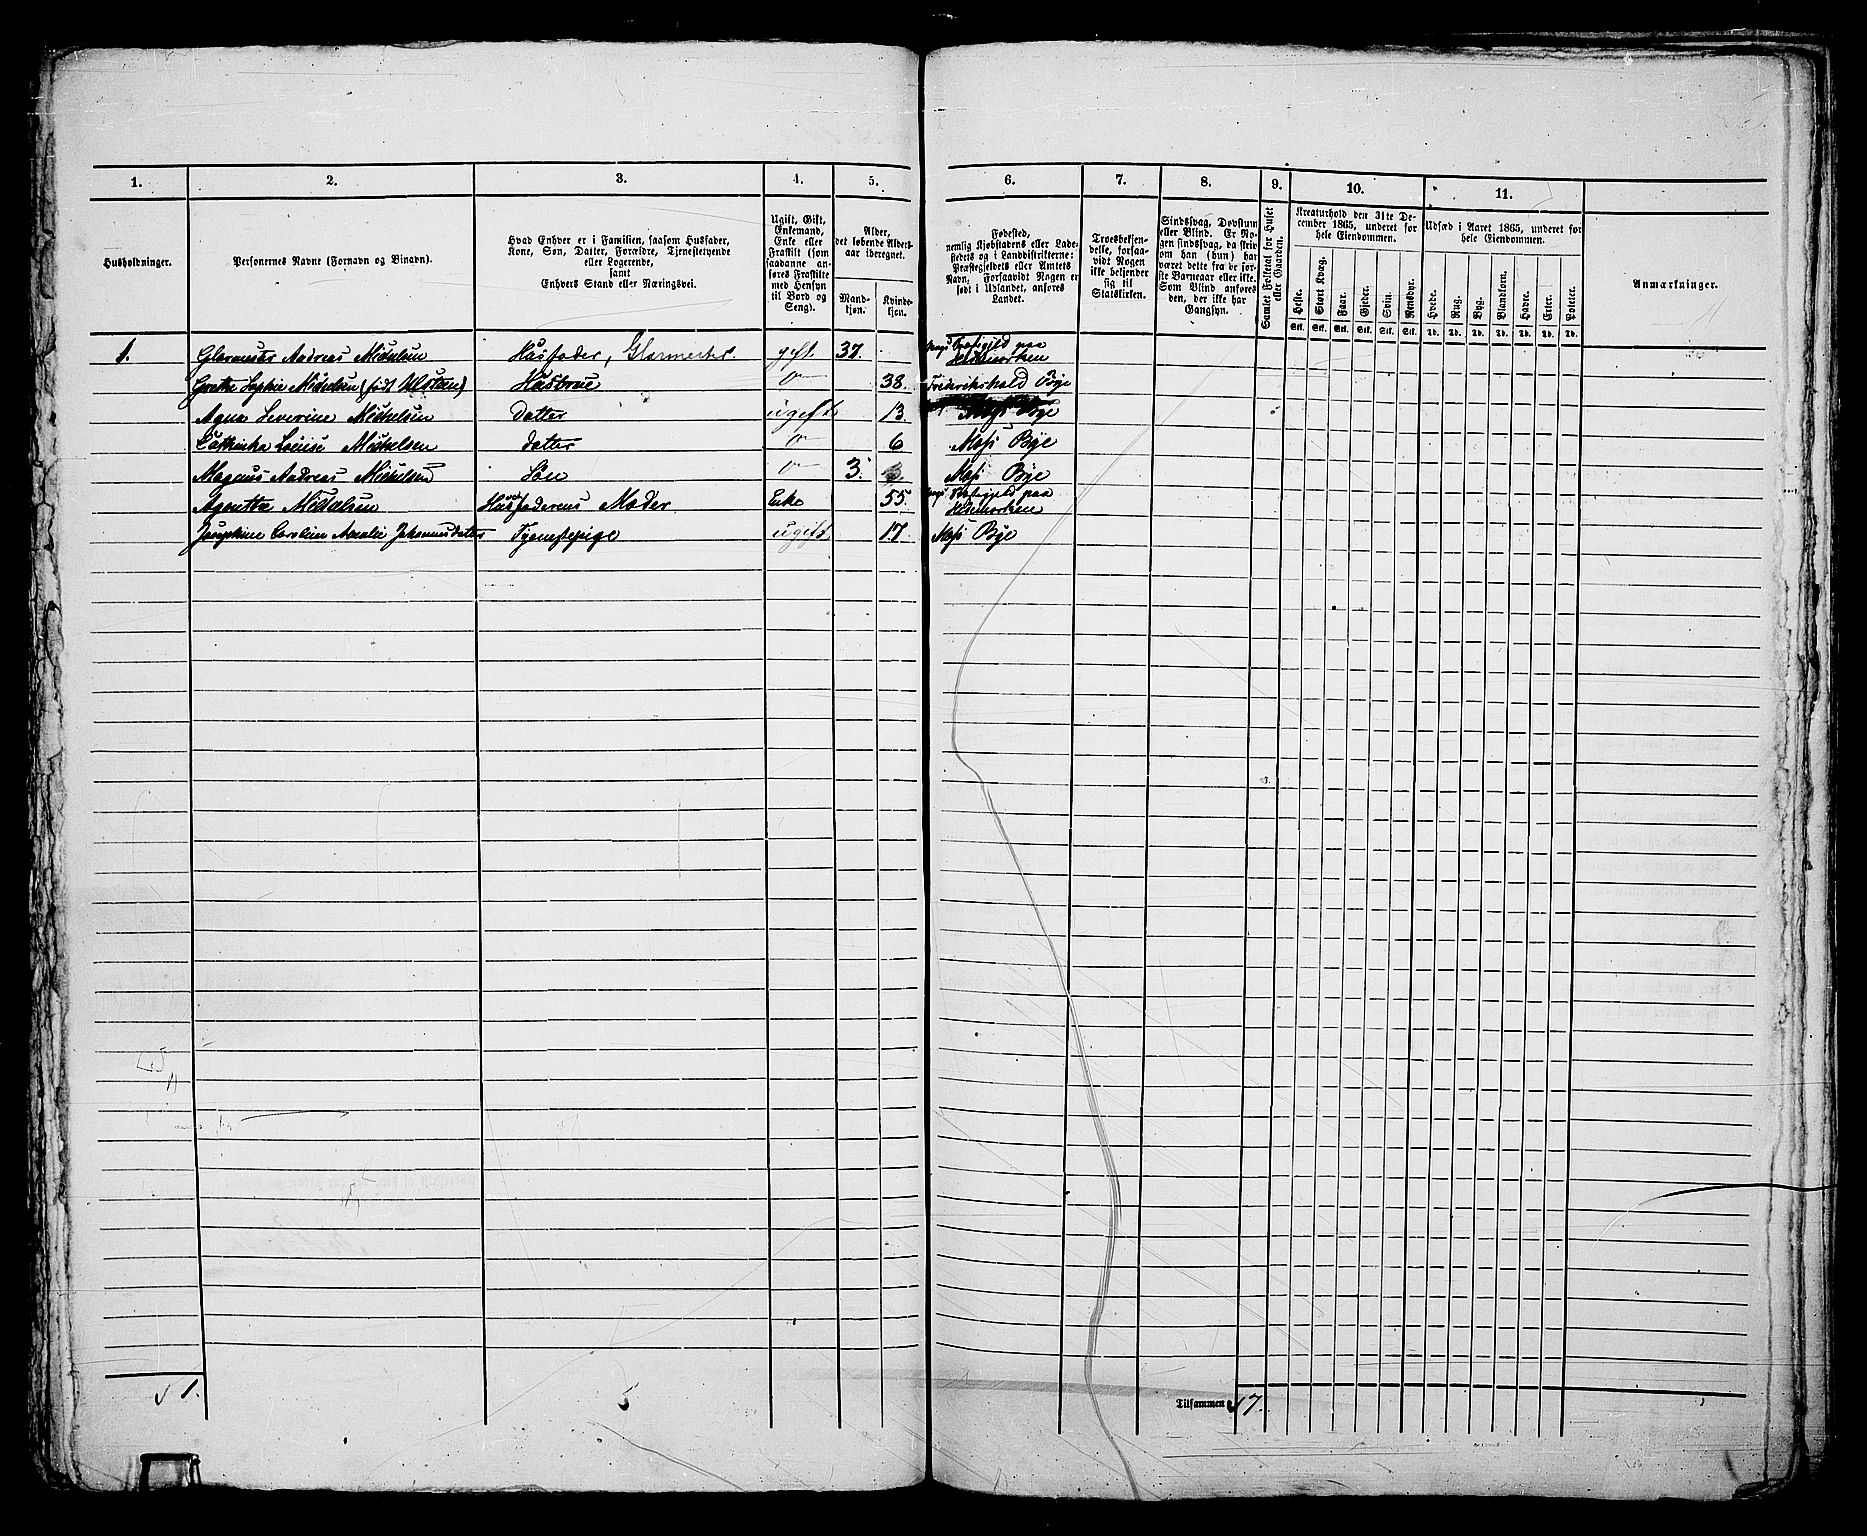 1. 2. 3. 4. 5. 6. 7. 8. 9. 10. 11.
Husholdninger.
Personernes Navne (Fornavn og Binavn).
Hvad Enhver er i Familien, saasom Husfader,
Kone, Søn, Datter, Forældre, Tjenestetyende
eller Logerende,
samt
Enhvers Stand eller Næringsvei.
Ugift, Gift,
Enkemand,
Enke eller
Fraskilt (som
saadanne an-
føres Fraskilte
med Hensyn
til Bord og
Seng).
Alder,
det løbende Alders-
aar iberegnet.
Mand-
kjøn.
Kvinde-
kjøn.
Fødested,
nemlig Kjøbstadens eller Lade-
stedets og i Landdistrikterne:
Præstegjeldets eller Amtets
Navn. Forsaavidt Nogen er
født i Udlandet, anføres
Landet.
Troesbekjen-
delse, forsaa-
vidt Nogen
ikke bekjender
sig til
Statskirken.
Sindssvag, Døvstum
eller Blind. Er No-
gen sindssvag, da skriv
om han (hun) har
været dette fra de før-
ste Barneaar eller ikke.
Som Blind anføres
den, der ikke har
Gangsyn.
Samlet Folketal for Huset
eller Gaarden.
Kreaturhold den 31te De-
cember 1865, underet for
hele Eiendommen.
Heste. Stort Kvæg. Faar. Gjeder. Svin. Rensdyr.
Stk. Stk. Stk. Stk. Stk. Stk.
Udsæd i Aaret 1865, underet for
hele Eiendommen.
Hvede. Rug. Byg. Blandkorn. Havre. Erter. Poteter.
Td. Td. Td. Td. Td. Td. Td.
Anmærkninger.
1. Glarmester Andreas Mickelsen Husfader, Glarmester. gift 37. Præstegjeld paa
Hedemarken
Grethe Sophie Mickelsen Hustrue 38. Frederikshald Bye
Agna Severine Mickelsen Datter ugift 13. Moss Bye
Cathinka Louise Mickelsen Datter 6 Moss Bye
Magnus Andreas Mickelsen Søn 3. Moss Bye
Agenthe Mickelsen Husfaderens Moder Enke 55 Præstegjeld paa
Hedemarken
Josephine Caroline Amalie Johannesdatter Tjenestepige ugift 17. Moss Bye
1. 5 Tilsammen 7.